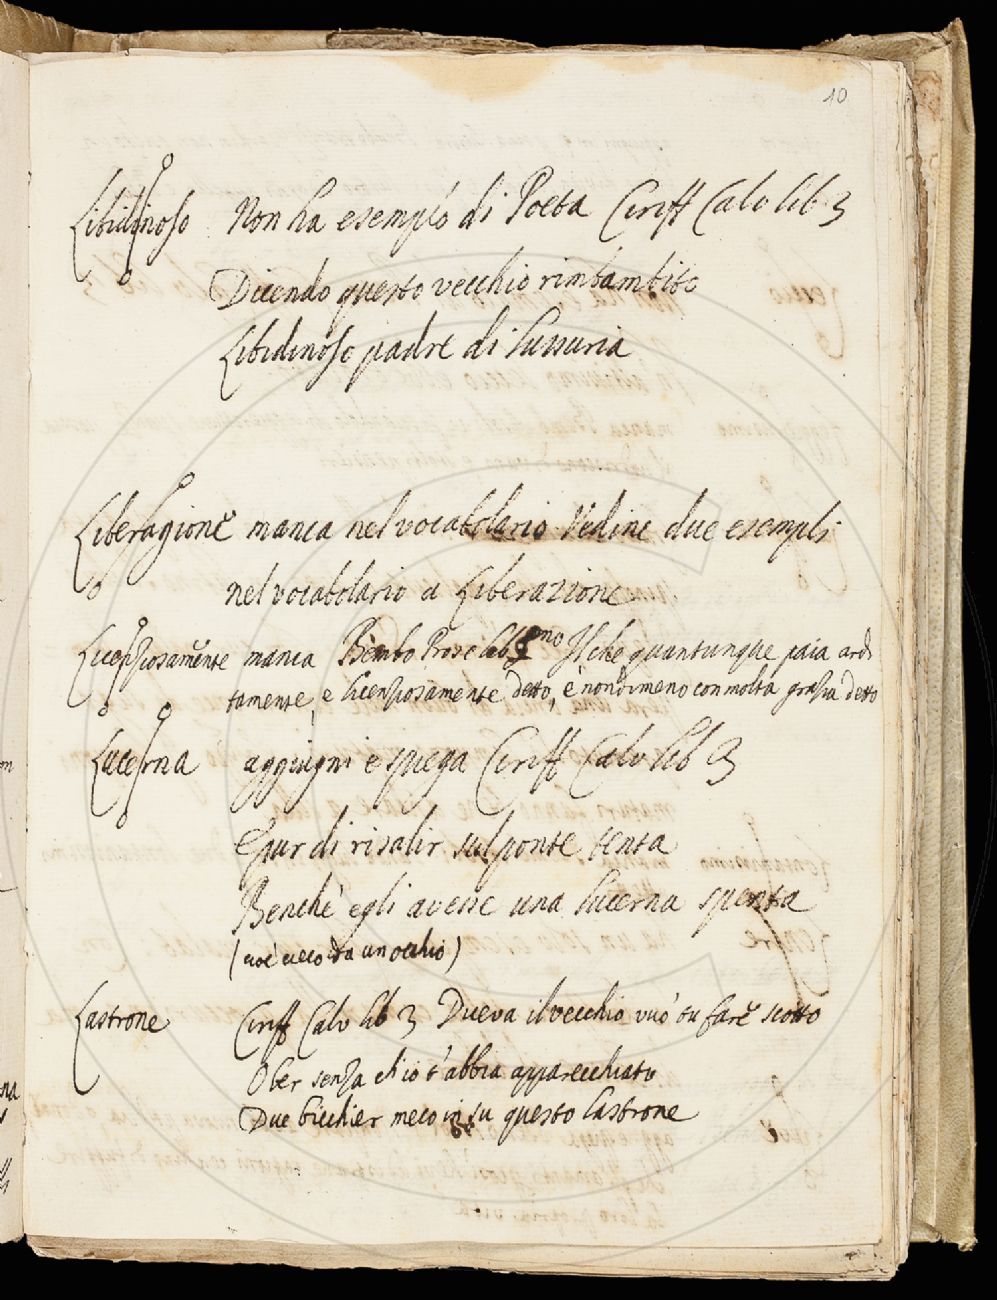 10
Libidinoso Non ha esempio di Poeta Ciriff Calv lib 3
Dicendo questo vecchio rimbambito
Libidinoso padre di lussuria
Liberagione manca nel vocabolario Vedine due esempli
nel vocabolario a Liberazione
Licenziosamente manca Bembo Prose lib Il che quantunque paia ardi
tamente, e licenziosamente detto, è nondimeno con molta grazia detto
Lucerna aggiugni e spiega Ciriff Calv lib 3
E pur di risalir sul ponte tenta
Benchè egli avesse una lucerna spenta
(cioè cieco da un occhio)
Lastrone Ciriff Calv lib 3 Diceva il vecchio vuo' tu fare scotto
O ber senza ch'io t'abbia apparecchiato
Due bicchier meco in su questo lastrone